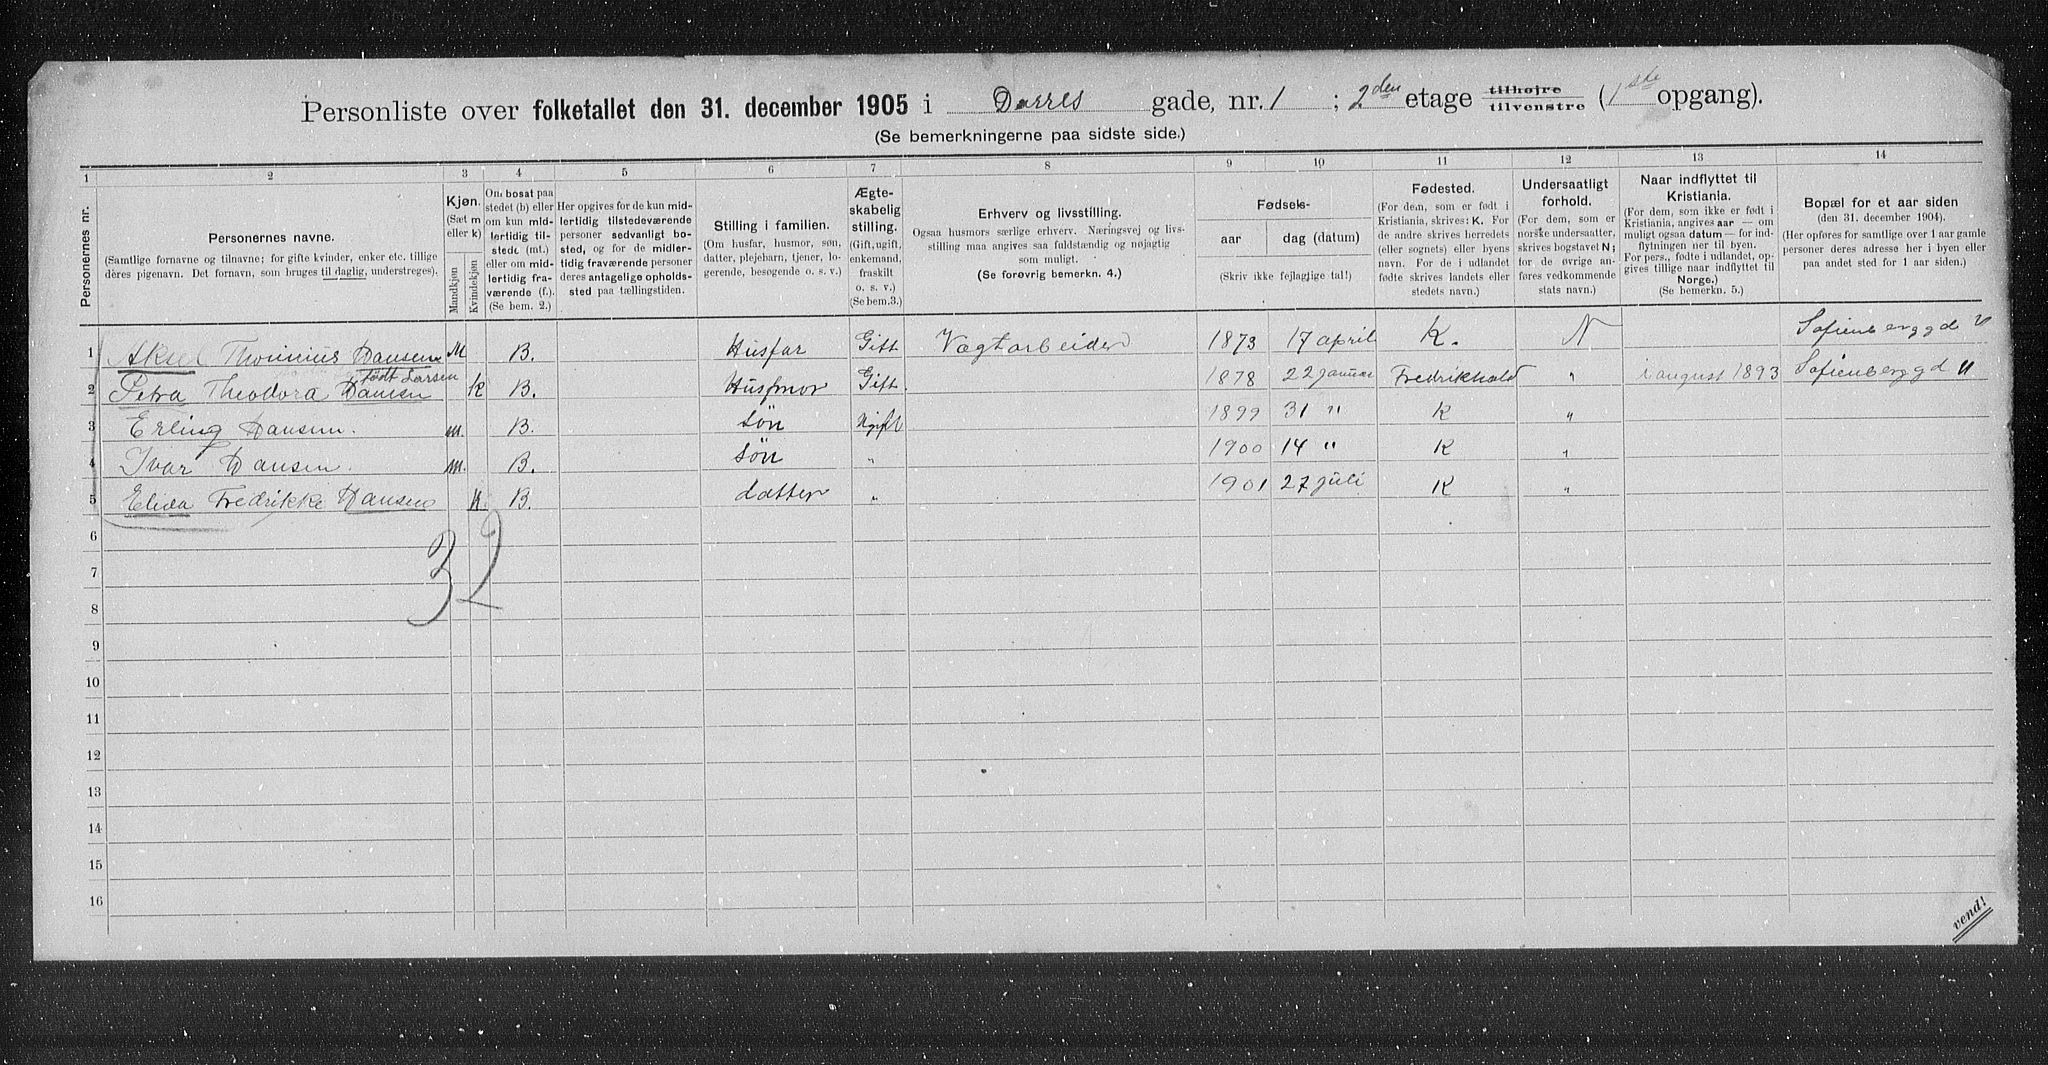 Personliste over folketallet den 31. december 1905 i Darres gade, nr. 1 ; 2den etage tilhøjre tilvenstre (1ste opgang).
(Se bemerkningerne paa sidste side.)
1 2 3 4 5 6 7 8 9 10 11 12 13 14
Personernes nr.
Personernes navne.
(Samtlige fornavne og tilnavne; for gifte kvinder, enker etc. tillige
deres pigenavn. Det fornavn, som bruges til daglig, understreges).
Kjøn.
(Sæt m
eller k)
Mandkjøn
Kvindekjøn
Om bosat paa
stedet (b) eller
om kun mid-
lertidig til-
stede (mt.)
eller om mid-
lertidig fra-
værende (f.).
(Se bem. 2.)
Her opgives for de kun mid-
lertidig tilstedeværende
personer sedvanligt bo-
sted, og for de midler-
tidig fraværende personer
deres antagelige opholds-
sted paa tællingstiden.
Stilling i familien.
(Om husfar, husmor, søn,
datter, plejebarn, tjener, lo-
gerende, besøgende o. s. v.)
Ægte-
skabelig
stilling.
(Gift, ugift,
enkemand,
fraskilt
o. s. v.)
(Se bem. 3.)
Erhverv og livsstilling.
Ogsaa husmors særlige erhverv. Næringsvej og livs-
stilling maa angives saa fuldstændig og nøjagtig
som muligt.
(Se forøvrig bemerkn. 4.)
Fødsels-
aar
dag (datum)
(Skriv ikke fejlagtige tal!)
Fødested.
(For dem, som er født i
Kristiania, skrives: K. For
de andre skrives herredets
(eller sognets) eller byens
navn. For de i udlandet
fødte skrives landets eller
stedets navn.)
Undersaatligt
forhold.
(For dem, som er
norske undersaatter,
skrives bogstavet N;
for de øvrige an-
føres vedkommende
stats navn.)
Naar indflyttet til
Kristiania.
(For dem, som ikke er født i
Kristiania, angives aar — om
muligt ogsaa datum — for ind-
flytningen ner til byen.
For pers., fødte i udlandet, op-
gives tillige naar indflyttet til
Norge.)
(Se bemerkn. 5.)
Bopæl for et aar siden
(den 31. december 1904).
(Her opføres for samtlige over 1 aar gamle
personer deres adresse her i byen eller
paa andet sted for 1 aar siden.)
1 Aksel Thomius Hansen M B. Husfar Gift Vægtarbeider 1873 17 april K. N Sofienberggd 11
født Larsen
2 Petra Theodora Hansen k B. Husmor Gift 1878 22 januar Fredrikhald " i august 1893 Sofienberggd 11
3 Erling Hansen. m. B. søn Ugift 1899 31 " K "
4 Ivar Hansen. m. B. søn " 1900 14 " K "
5 Elida Fredrikke Hansen K. B. datter " 1901 27 juli K "
6
32
7
8
9
10
11
12
13
14
15
16
vend!